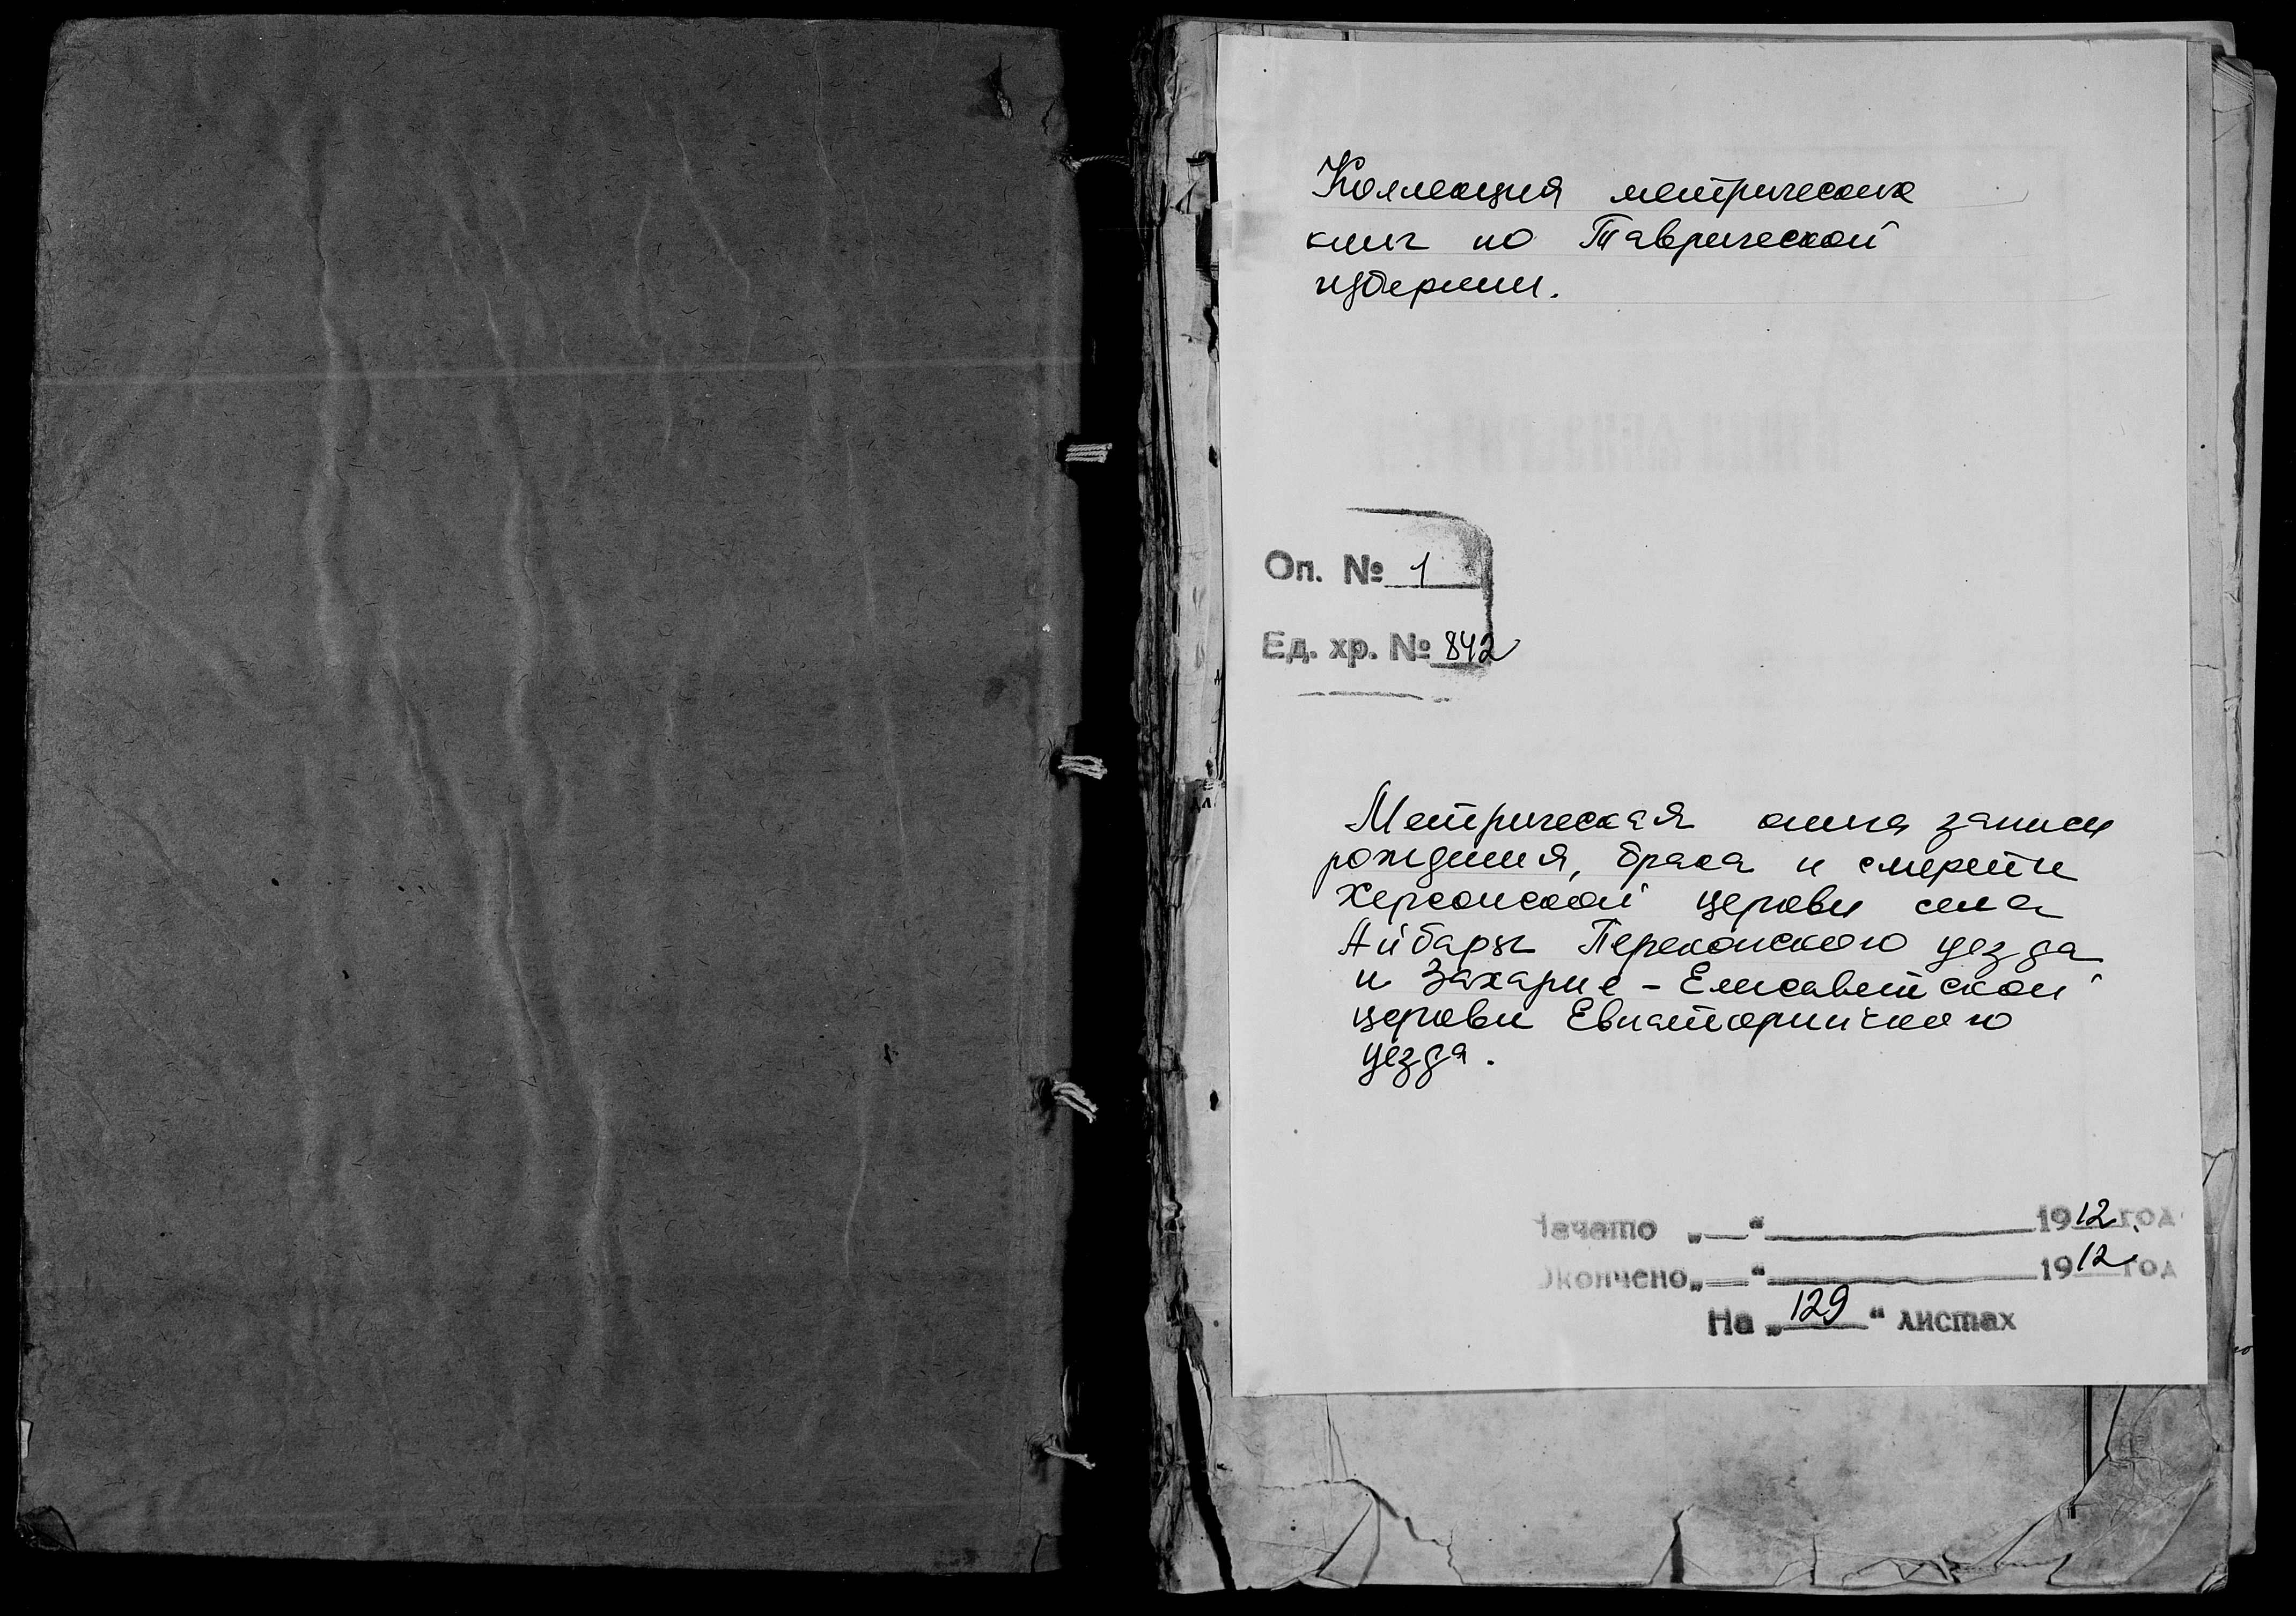 Коллекция метрических
книг по Таврической
губернии.
Оп. № 1
Ед. хр. № 842
Метрическая книга записи
рождения, брака и смерти
Херсонской церкви села
Айбары Перекопского уезда
и Захарие-Елисаветской
церкви Евпаторийского
уезда.
Начато „—“ 1912 год
Окончено „—“ 1912 год
На „129“ листах